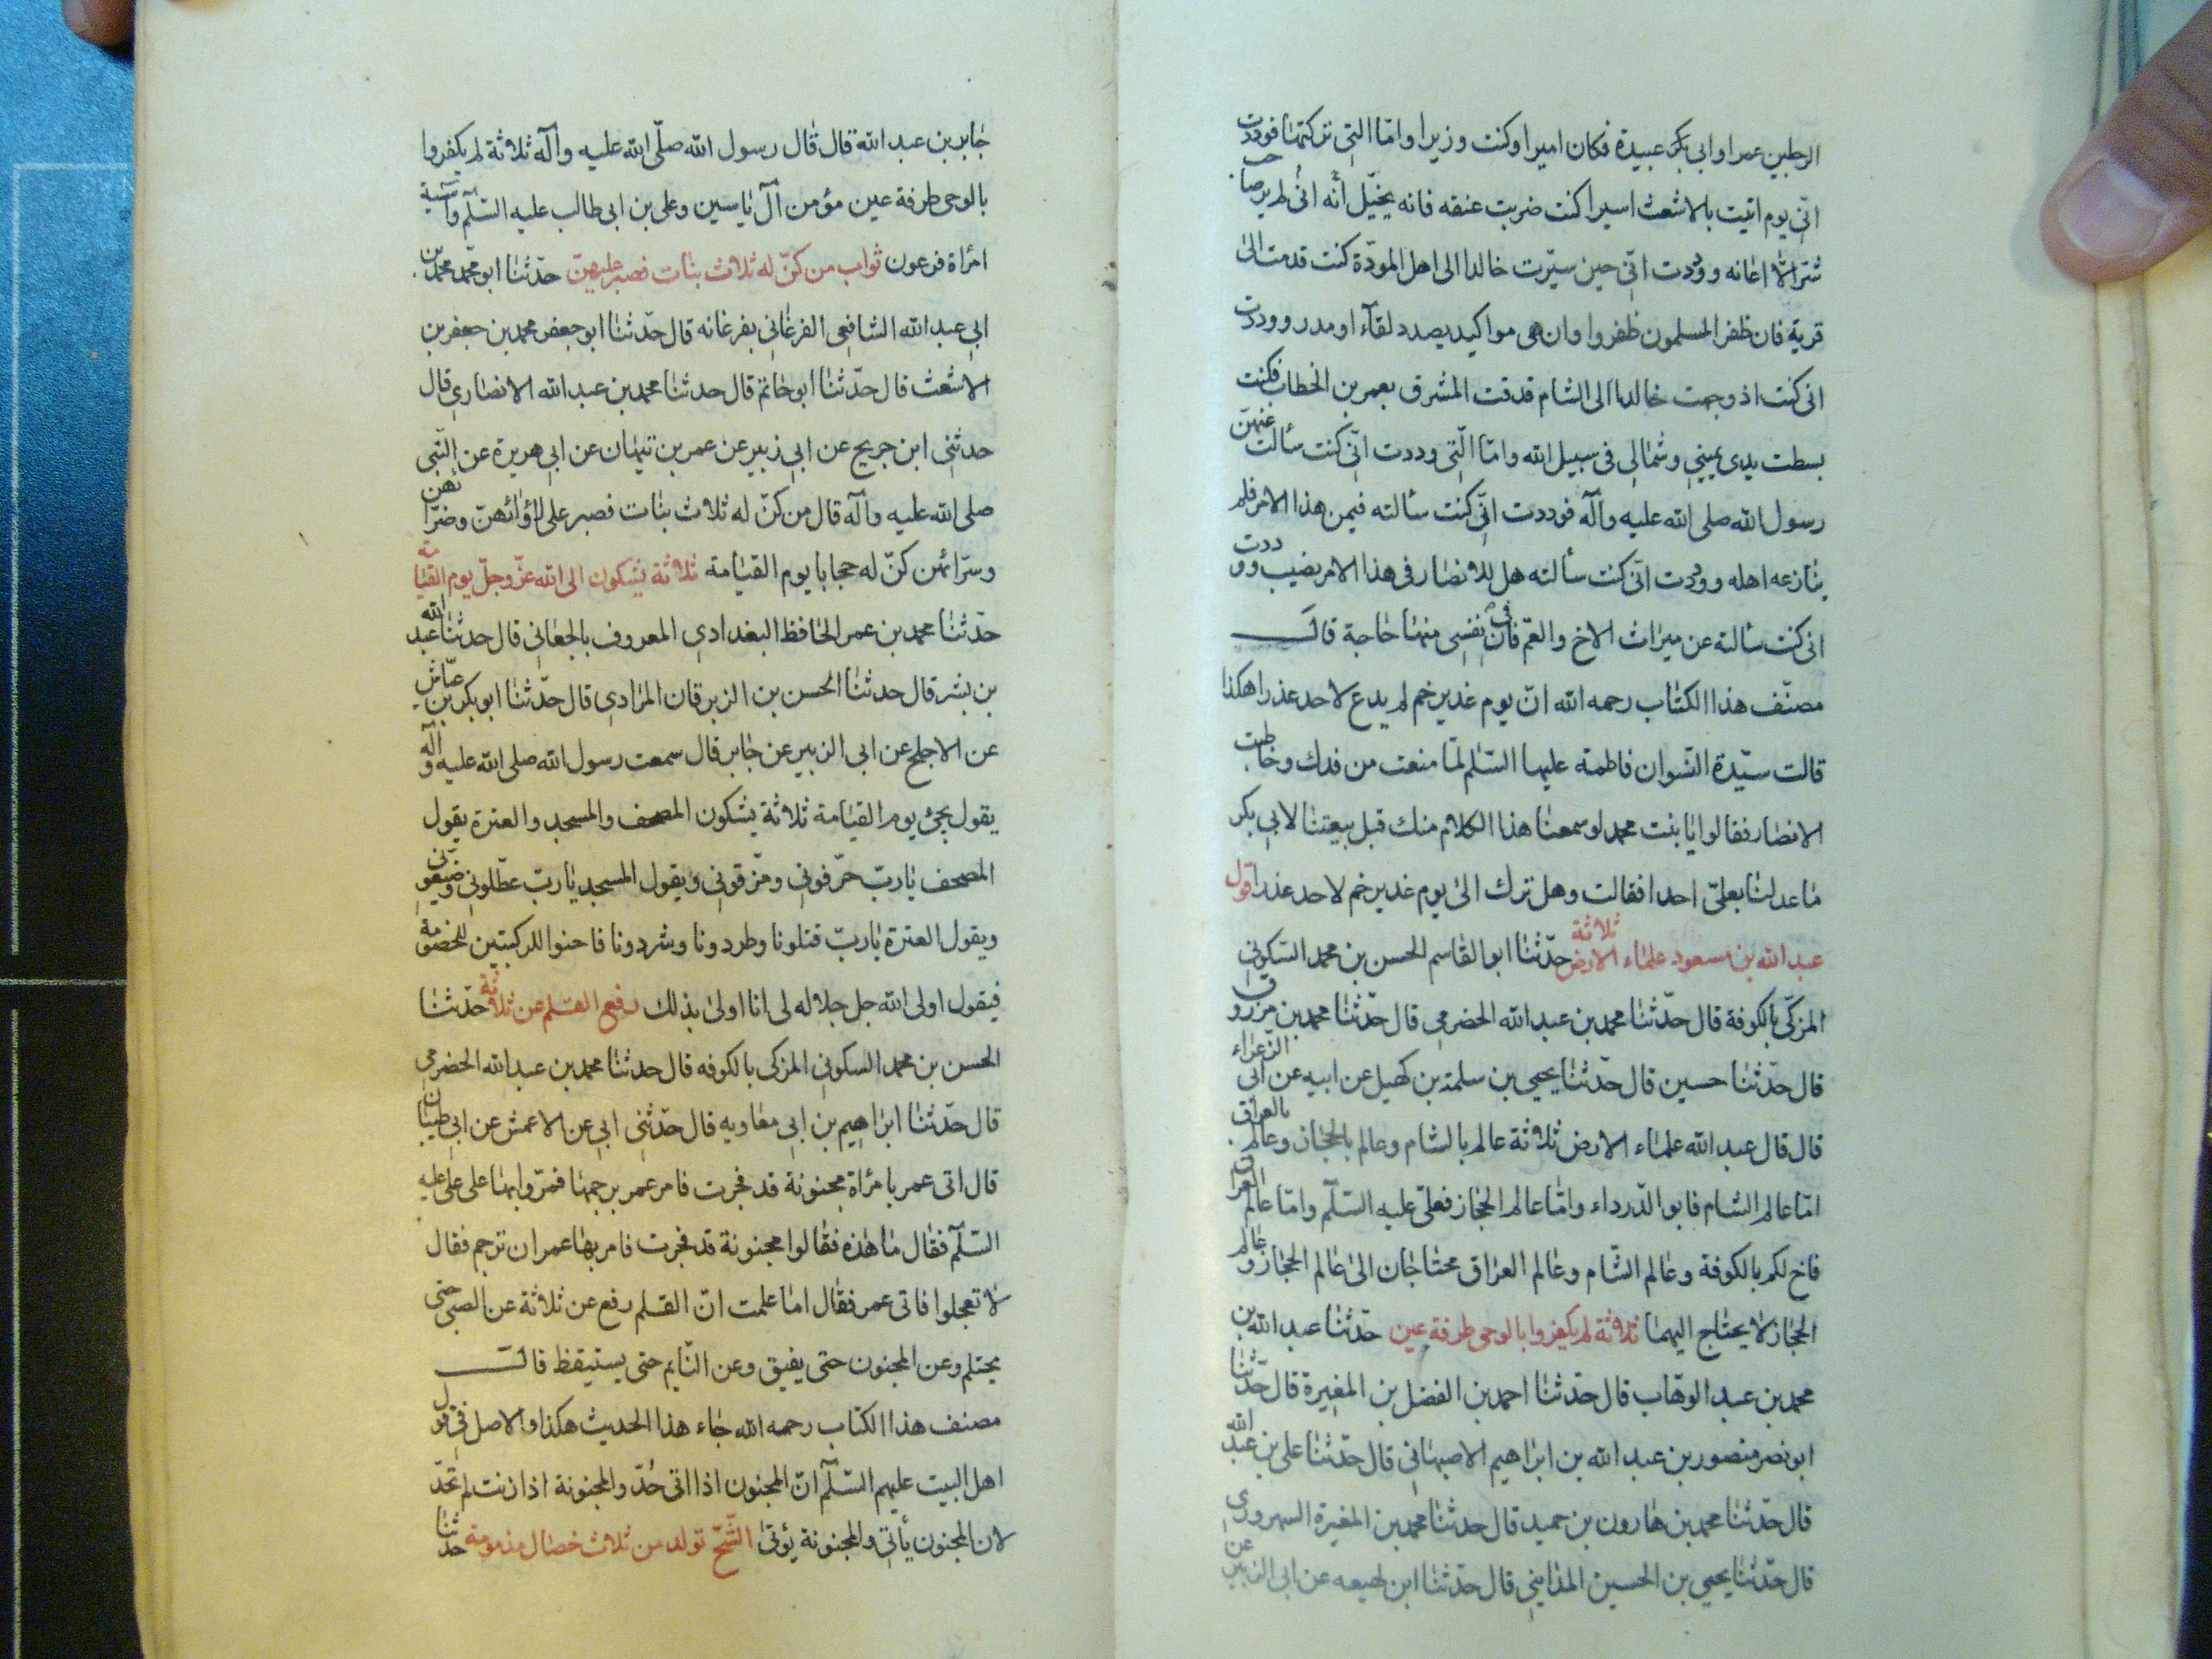 الرجلين عمرا و ابي بكر عبيدة فكان اميرا وكنت وزيرا واما التي تركتها فوددت
انّي يوم اتيت بالاشعث اسيرا كنت ضربت عنقه فانه يخيّل انّه انّى لم ير صاحب
شرّ الّا اعانه ووددت انّي حين سيّرت خالدا الى اهل المودّة كنت قدمت الى
قرية فان ظفر المسلمون ظفروا وان هموا كيد بصدد لقآء او مدد ووددت
انى كنت اذ وجهت خالدا الى الشام قدفت المشرق بعمر بن الخطاب فكنت
بسطت يدى يميني وشمالى فى سبيل الله وامّا الّتى وددت انّى كنت سألت عنهنّ
رسول الله صلى الله عليه وآله فوددت انّى كنت سألته فيمن هذا الامر فلم
ينازعه اهله ووددت انّى كنت سألته هل للانصار فى هذا الامر نصيب ووددت
انى كنت سألته عن ميراث الاخ والعم فان فى نفسى منها حاجة قال
مصنّف هذا الكتاب رحمه الله انّ يوم غدير خم لم يدع لاحد عذرا هكذا
قالت سيّدة النسوان فاطمة عليها السّلم لمّا منعت من فدك وخاطبت
الانصار فقالوا يا بنت محمد لو سمعنا هذا الكلام منك قبل بيعتنا لابي بكر
ما عدلنا بعلىّ احدا فقالت وهل ترك ابى يوم غدير خم لاحد عذرا قول
عبد الله بن مسعود علماء الارض ثلاثة حدّثنا ابو القاسم الحسن بن محمد السكونى
المزكّى بالكوفة قال حدّثنا محمد بن عبد الله الحضرمى قال حدّثنا محمد بن مرزوق
قال حدّثنا حسين قال حدّثنا يحيى بن سلمة بن كهيل عن ابيه عن ابى الزعراء
قال قال عبد الله علماء الارض ثلاثة عالم بالشام وعالم بالحجاز وعالم بالعراق
امّا عالم الشام فابو الدّرداء وامّا عالم الحجاز فعلىّ عليه السّلم وامّا عالم العراق
فاخ لكم بالكوفة وعالم الشّام وعالم العراق محتاجان الى عالم الحجاز وعالم
الحجاز لا يحتاج اليهما ثلاثة لم يكفروا بالوحى طرفة عين حدّثنا عبد الله بن
محمد بن عبد الوهّاب قال حدّثنا احمد بن الفضل بن المغيرة قال حدّثنا
ابو نصر منصور بن عبد الله بن ابراهيم الاصبهانى قال حدّثنا على بن عبد الله
قال حدّثنا محمد بن هارون بن حميد قال حدثنا محمد بن المغيرة السهروردى
قال حدّثنا يحيى بن الحسين المداينى قال حدّثنا ابن لهيعه عن ابى الزبير عن
جابر بن عبد الله قال قال رسول الله صلّى الله عليه وآله ثلاثة لم يكفروا
بالوحى طرفة عين مؤمن آل ياسين وعلى بن ابى طالب عليه السّلم وآسية
امرأة فرعون ثواب من كنّ له ثلاث بنات فصبر عليهنّ حدّثنا ابو محمّد محمد بن
ابي عبد الله الشافعى الفرغانى بفرغانه قال حدّثنا ابو جعفر محمد بن جعفر بن
الاشعث قال حدّثنا ابو حاتم قال حدثنا محمد بن عبد الله الانصاري قال
حدثني ابن جريج عن ابى زبير عن عمر بن تيهان عن ابى هريرة عن النّبى
صلى الله عليه وآله قال من كنّ له ثلاث بنات فصبر على لأوائهنّ وضرّائهن
وسرّائهن كنّ له حجابا يوم القيامة ثلاثة يشكون الى الله عزّ وجلّ يوم القيامة
حدّثنا محمد بن عمر الحافظ البغدادي المعروف بالجعانى قال حدثنا عبد الله
بن بشر قال حدثنا الحسن بن الزبرقان المرادى قال حدّثنا ابو بكر بن عيّاش
عن الاجلح عن ابى الزبير عن جابر قال سمعت رسول الله صلى الله عليه وآله
يقول يجئ يوم القيامة ثلاثة يشكون المصحف والمسجد والعترة يقول
المصحف يا ربّ حرّفوني ومزّقوني ويقول المسجد يا ربّ عطّلوني وضيّعوني
ويقول العترة يا ربّ قتلونا وطردونا وشردونا فاحنوا للركبتين للخصومة
فيقول اولى الله جل جلاله لى انا اولى بذلك رفع القلم عن ثلاثة حدّثنا
الحسن بن محمد السكونى المزكى بالكوفه قال حدثنا محمد بن عبد الله الحضرمى
قال حدّثنا ابراهيم بن ابى معاويه قال حدّثنى ابى عن الاعمش عن ابى ظبيان
قال اتى عمر بامرأة مجنونة قد فجرت فامر عمر برجمها فمرّوا بها على على عليه
السّلم فقال ما هذه فقالوا مجنونة قد فجرت فامر بها عمر ان ترجم فقال
لا تعجلوا فاتى عمر فقال اما علمت انّ القلم رفع عن ثلاثة عن الصبى حتى
يحتلم وعن المجنون حتى يفيق وعن النّايم حتى يستيقظ قال
مصنف هذا الكتاب رحمه الله جاء هذا الحديث هكذا والاصل فى قول
اهل البيت عليهم السّلم انّ المجنون اذا اتى حُدّ والمجنونة اذا زنت لم تحدّ
لان المجنون يأتى والمجنونة يؤتى الشّحّ تولد من ثلاث خصال مذمومة حدثنا